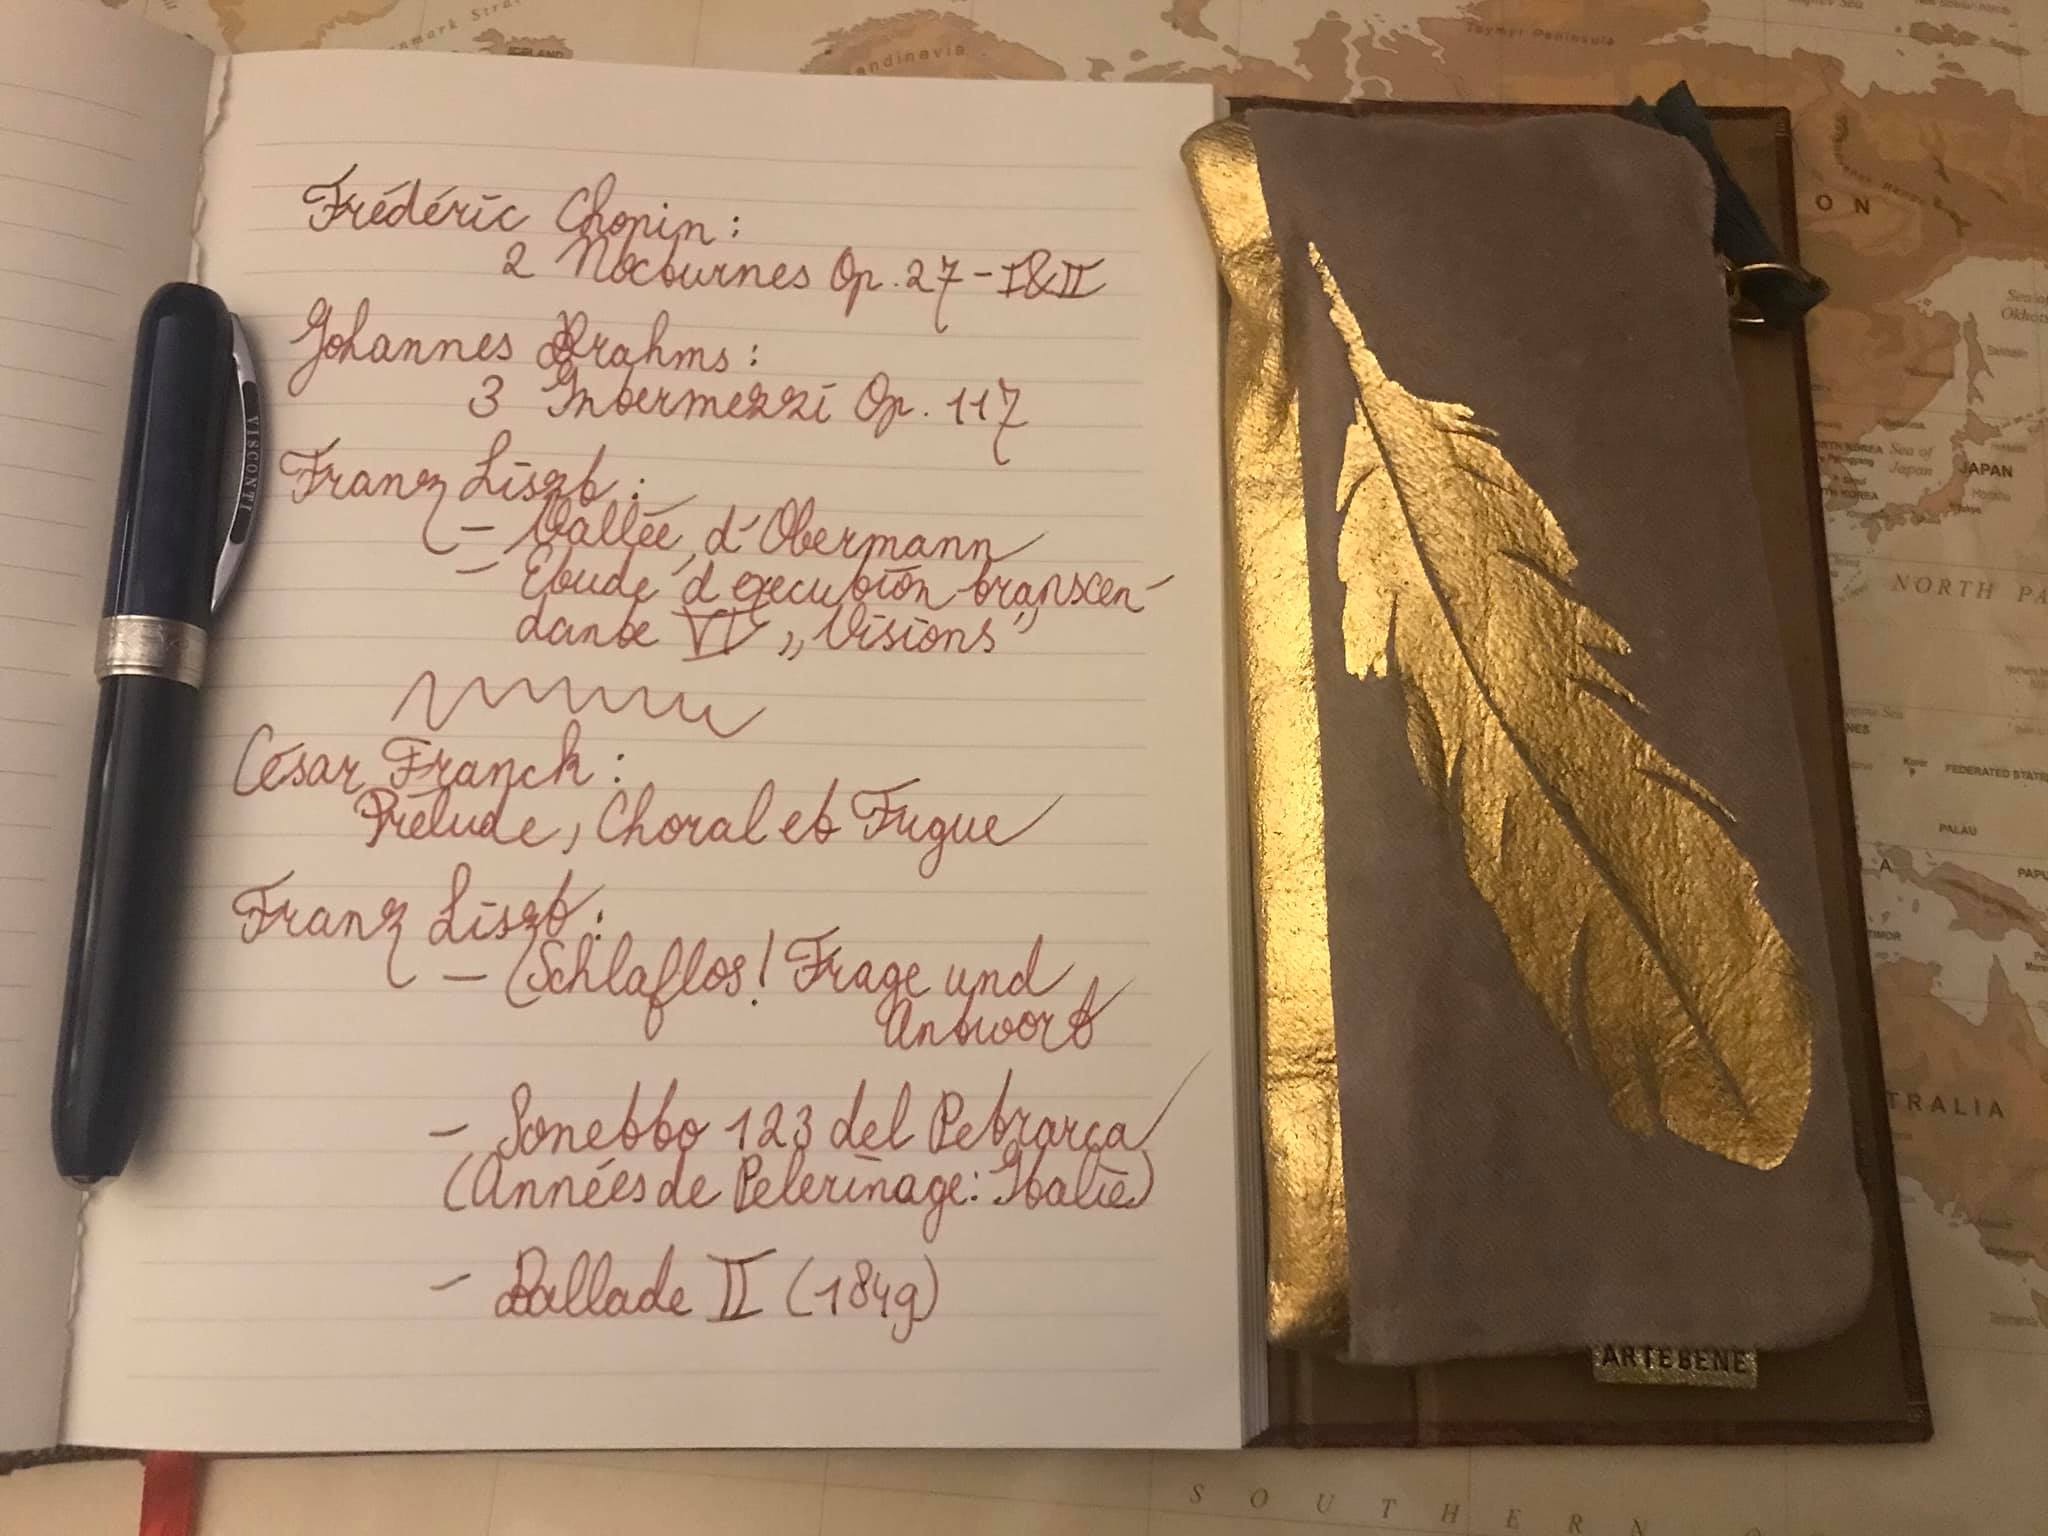 Frédéric Chopin:
2 Nocturnes Op. 27 - I & II
Johannes Brahms:
3 Intermezzi Op. 117
Franz Liszt:
- Vallée d'Obermann
- Etude d'execution transcen-
dante VI „Visions"
César Franck:
Prélude, Choral et Fugue
Franz Liszt:
- Schlaflos! Frage und
Antwort
- Sonetto 123 del Petrarca
(Années de Pelerinage: Italie)
- Ballade II (1849)
VISCONTI
ARTEBENE
ICELAND
Scandinavia
Taymyr Peninsula
Sea of
Okhotsk
Sakhalin
NORTH KOREA
Sea of
Japan
JAPAN
Honshu
NORTH PA
FEDERATED STATE
PALAU
TIMOR
TRALIA
SOUTHERN O